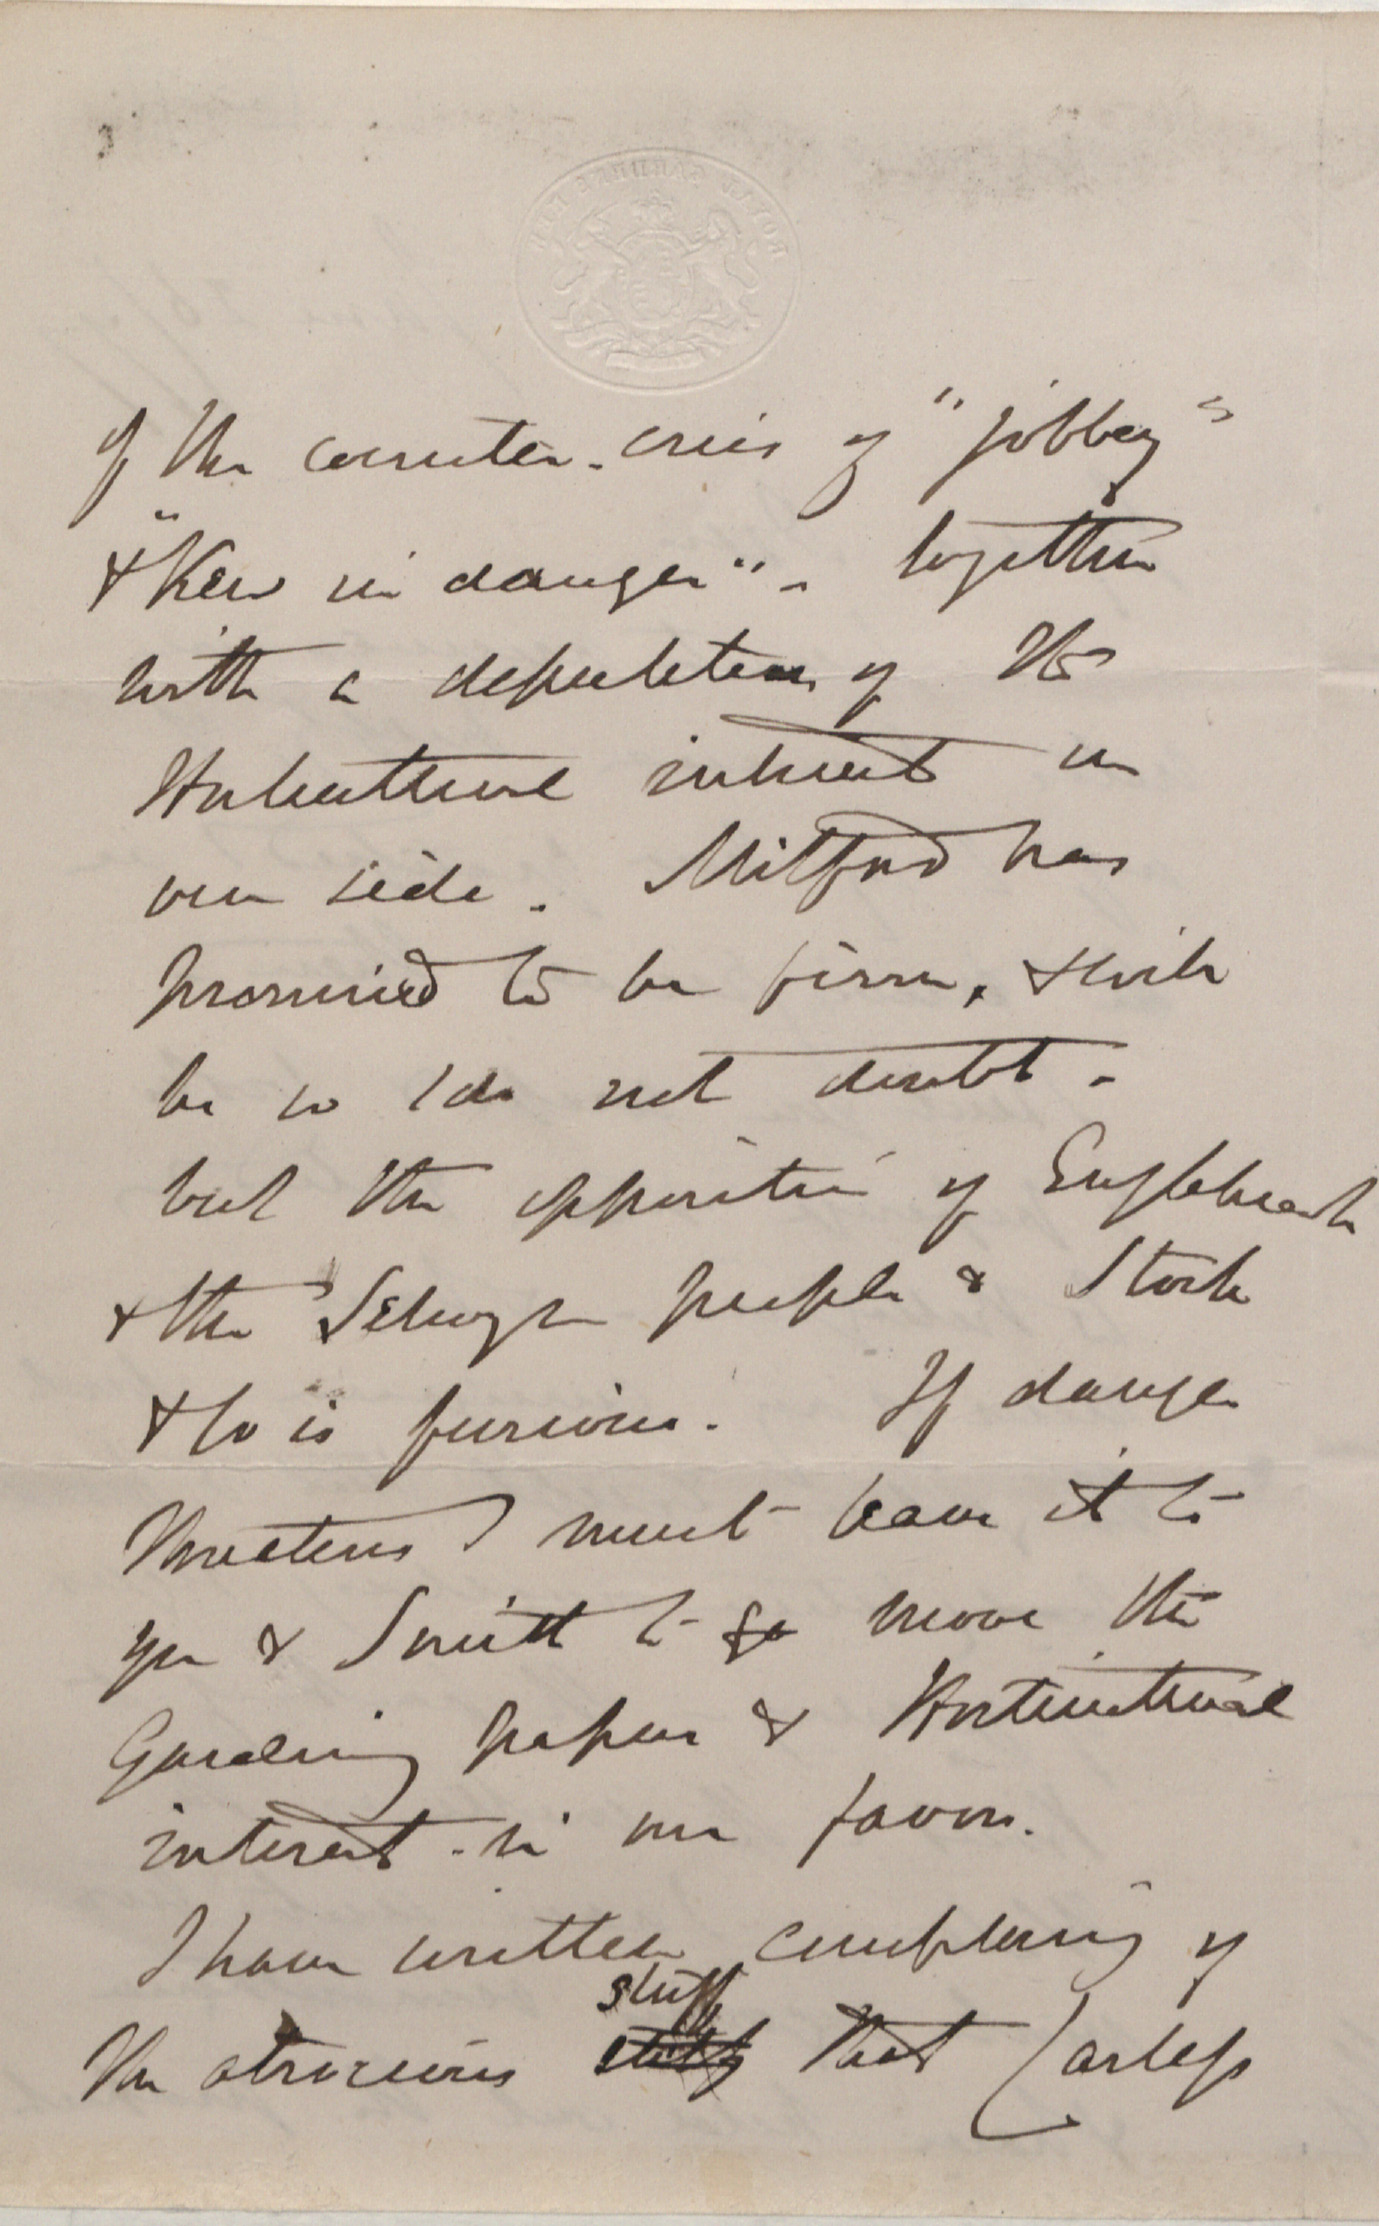 ROYAL GARDENS KEW
of the counter-cries of "jobbery"
& "Kew in danger" - together
with a deputation of the
Horticultural interest on
our side. Mitford has
promised to be firm, & will
be so I do not doubt -
but the opposition of Engleheart
& the Selwyn people & Stork
& Co is furious. If danger
threatens I must leave it to
you & Smith to go move the
Gardening papers & Horticultural
interest in our favor.
I have written complaining of
the atrocious stuff that Carless